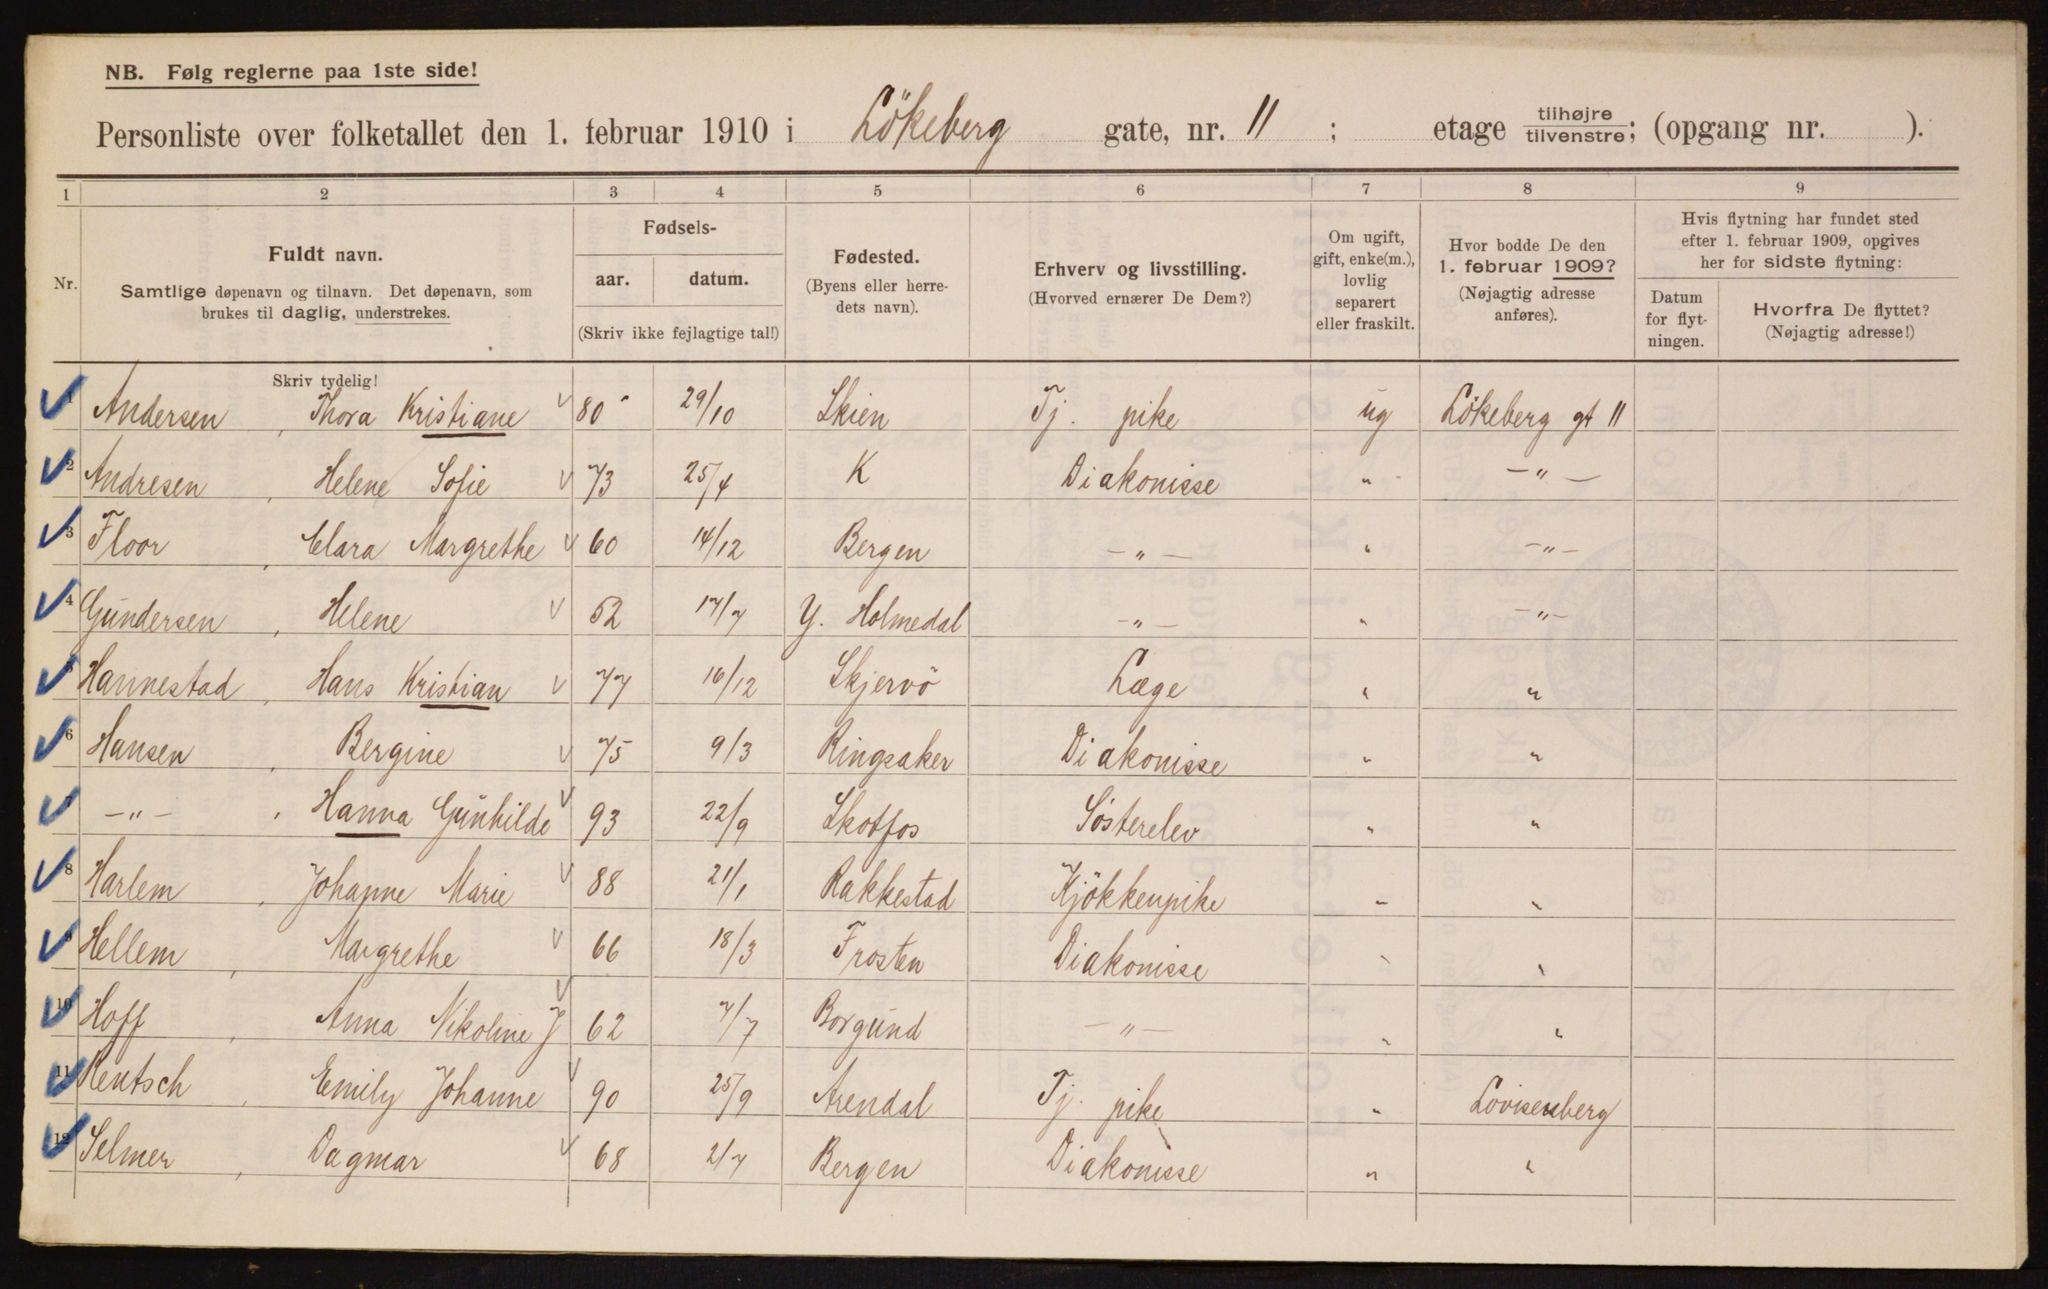 NB. Følg reglerne paa 1ste side!
Personliste over folketallet den 1. februar 1910 i Lökeberg gate, nr. 11 ; etage tilhøjre/tilvenstre; (opgang nr. ).
1 2 3 4 5 6 7 8 9
Nr.
Fuldt navn.
Samtlige døpenavn og tilnavn. Det døpenavn, som
brukes til daglig, understrekes.
Fødsels-
aar. datum.
(Skriv ikke fejlagtige tal!)
Fødested.
(Byens eller herre-
dets navn).
Erhverv og livsstilling.
(Hvorved ernærer De Dem?)
Om ugift,
gift, enke(m.),
lovlig
separert
eller fraskilt.
Hvor bodde De den
1. februar 1909?
(Nøjagtig adresse
anføres).
Hvis flytning har fundet sted
efter 1. februar 1909, opgives
her for sidste flytning:
Datum
for flyt-
ningen.
Hvorfra De flyttet?
(Nøjagtig adresse!)
Skriv tydelig!
1 Andersen, Thora Kristiane 80 29/10 Skien Tj. pike ug Lökeberg gt 11
2 Andresen, Helene Sofie 73 25/4 K Diakonisse " —"—
3 Floor, Clara Margrethe 60 14/12 Bergen —"— " —"—
4 Gundersen, Helene 52 17/7 Y. Holmedal —"— " —"—
5 Hannestad, Hans Kristian 77 16/12 Skjervö Læge " "
6 Hansen, Bergine 75 9/3 Ringsaker Diakonisse " "
7 —"—, Hanna Gunhilde 93 22/9 Skotfos Sösterelev " "
8 Harlem, Johanne Marie 88 21/1 Rakkestad Kjökkenpike " "
9 Hellem, Margrethe 66 18/3 Frosten Diakonisse " "
10 Hoff, Anna Nikoline J 62 7/7 Borgund —"— " "
11 Rentsch, Emily Johanne 90 25/9 Arendal Tj. pike " Lovisenberg
12 Selmer, Dagmar 68 2/7 Bergen Diakonisse " "